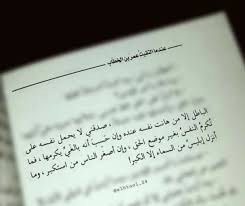 عندما التقيت عُمر بن الخطاب
، صدقني لا يحمل نفسه على
الباطل إلا من هانت نفسه عنده وإن حَسِبَ أنه بالغَيِّ يكرمها ، فما
تُكرمُ النفسُ بغير موضع الحق ، وإن أصغر الناس من استكبر ، وما
أنزلَ إبليسَ من السماء إلا الكبرُ!